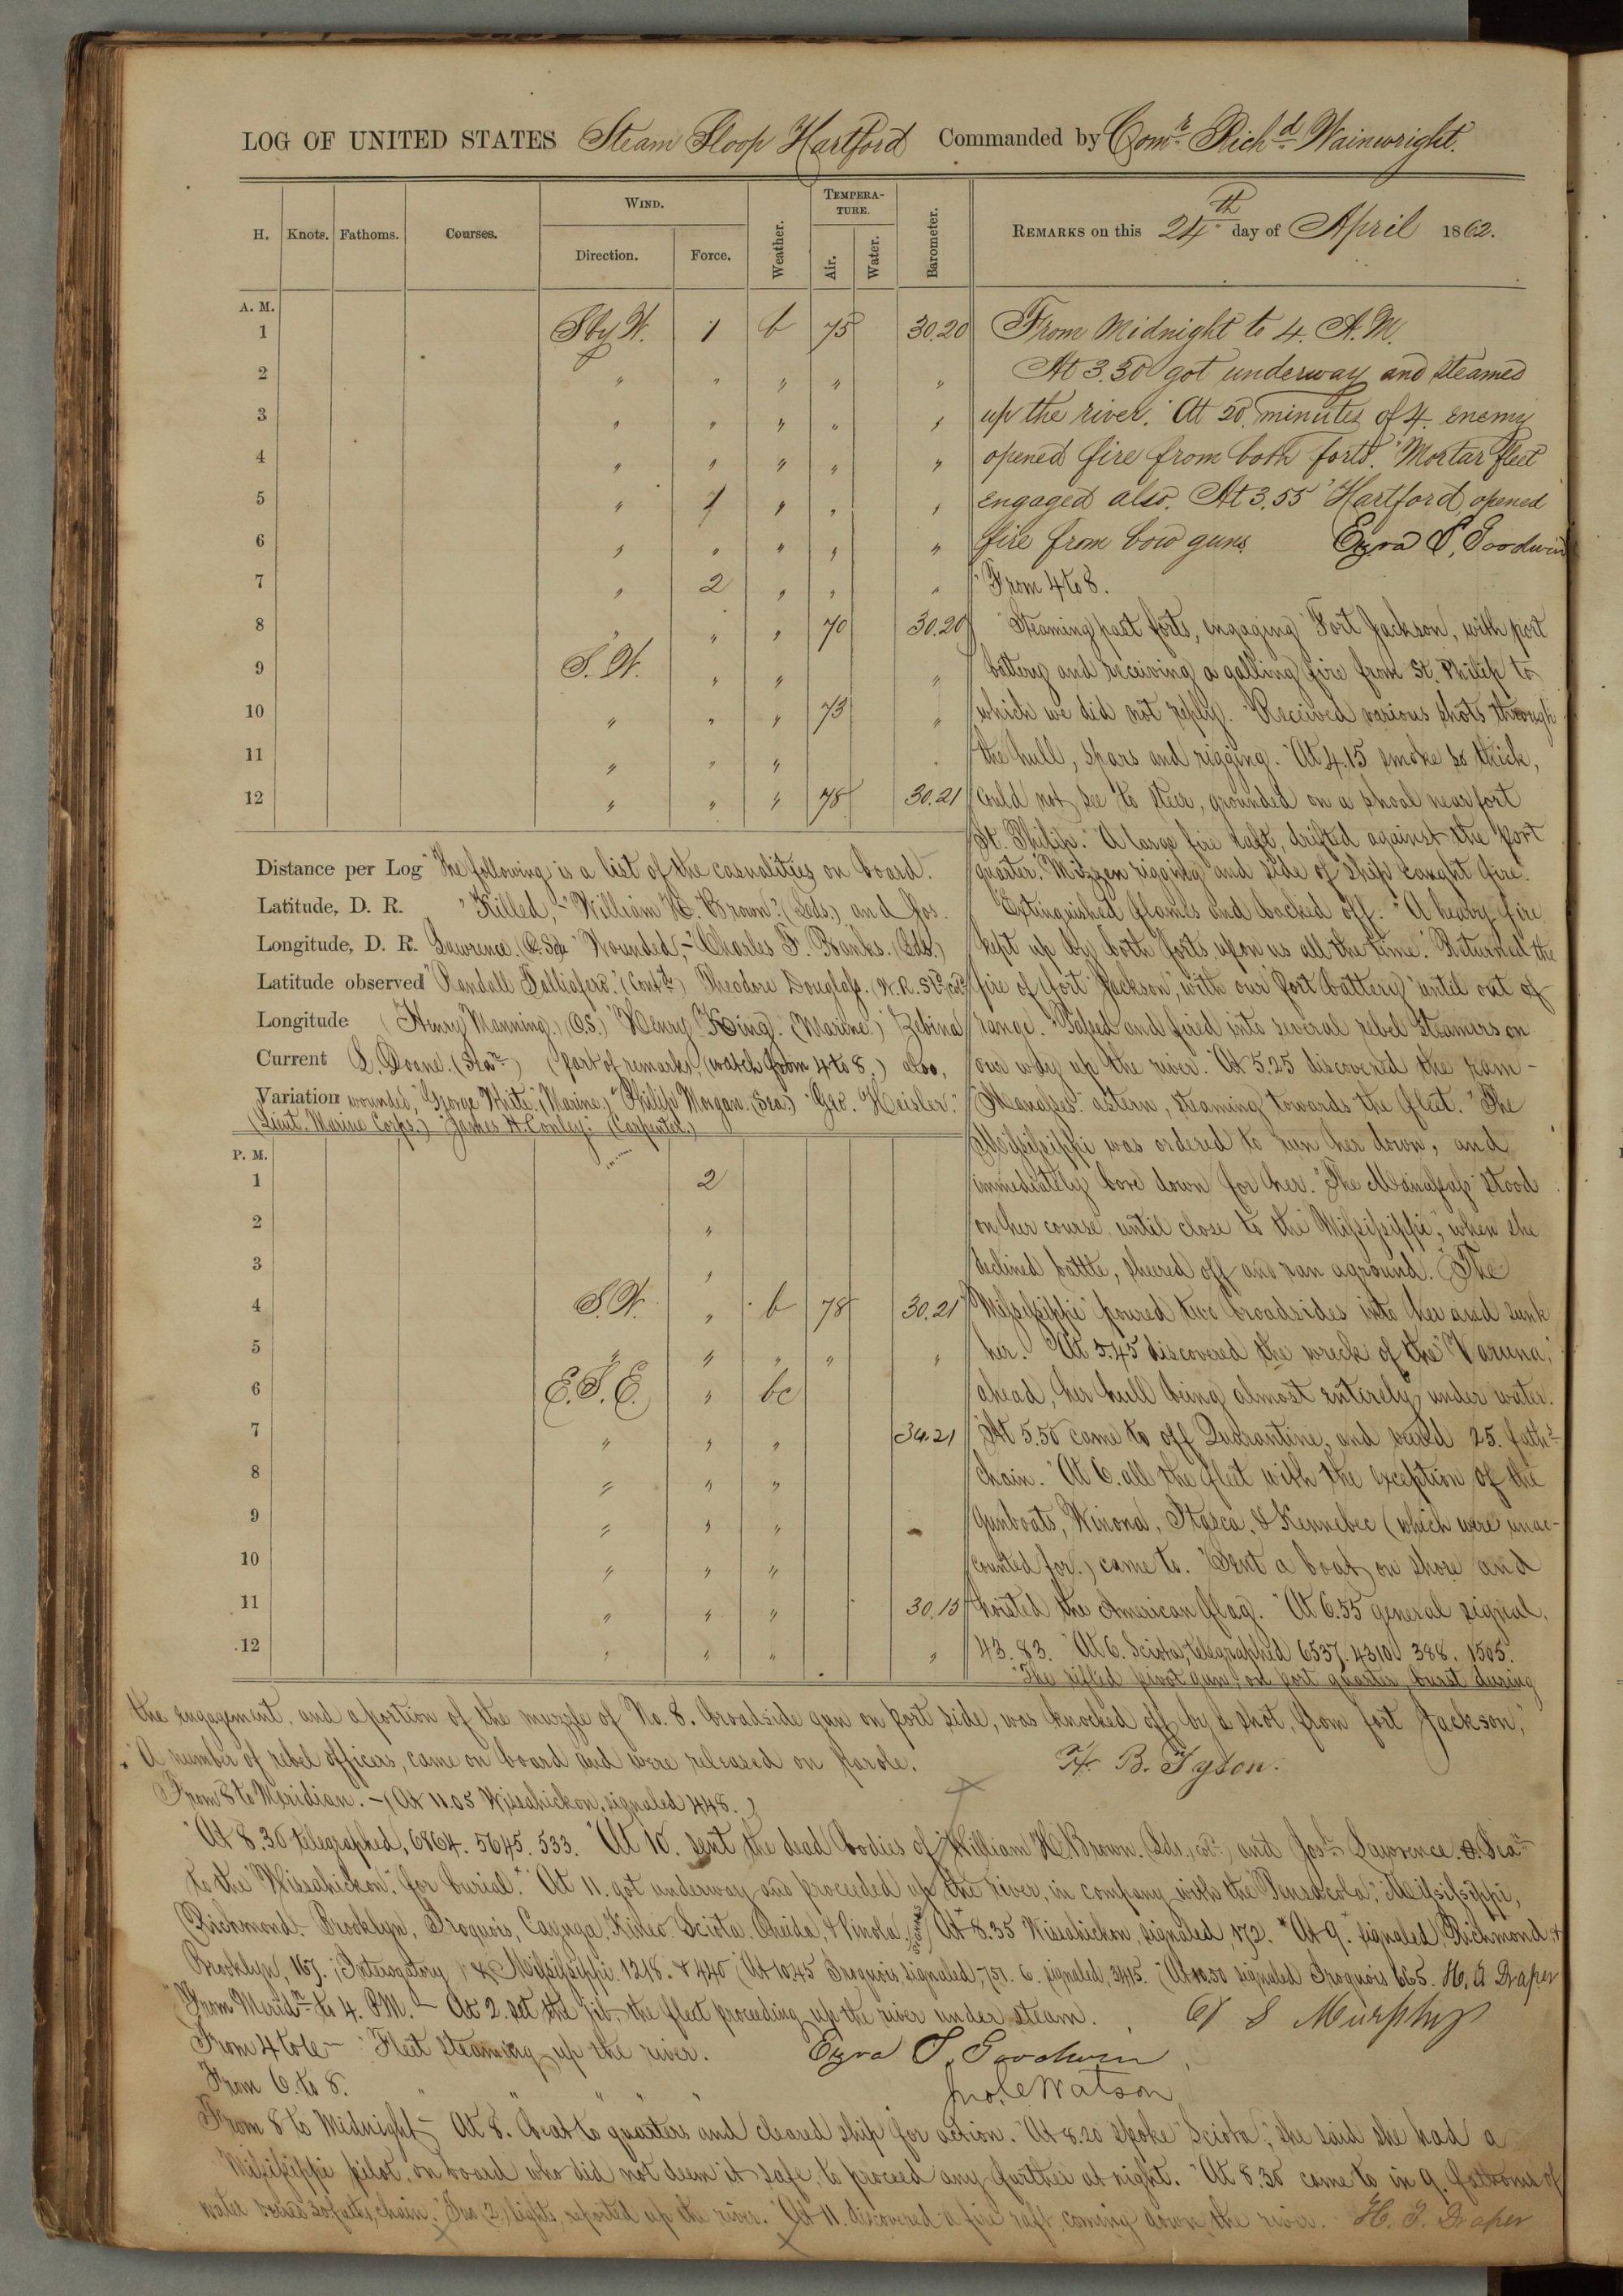 LOG OF UNITED STATES Steam Sloop Hartford Commanded by Comr. Richd. Wainwright.
H. Knots. Fathoms. Courses. WIND. Direction. Force. Weather. TEMPERATURE. Air. Water. Barometer. REMARKS on this 24th day of April 1862.
A. M.
1 S by W. 1 b 75 30.20
2 " " " " "
3 " " " " "
4 " " " " "
5 " 1 " " "
6 " " " " "
7 " 2 " " "
8 " " " 70 30.20
9 S. W. " " "
10 " " " 73 "
11 " " "
12 " " " 78 30.21
From Midnight to 4. A.M.
At 3.30 got underway and steamed
up the river. At 20. minutes of 4. enemy
opened fire from both forts. Mortar fleet
engaged also. At 3.55 Hartford, opened
fire from bow guns Ezra S. Goodwin
From 4 to 8.
Steaming past forts, engaging Fort Jackson, with port
battery and receiving a galling fire from St. Philip to
which we did not reply. Received various shots through
the hull, spars and rigging. At 4.15 smoke so thick,
could not see to steer, grounded on a shoal near fort
St. Philip. A large fire raft, drifted against the port
quarter. Mizzen rigging and side of ship caught fire.
Extinguished flames and backed off. A heavy fire
kept up by both forts, upon us all the time. Returned the
fire of Fort Jackson, with our Port battery until out of
range. Passed and fired into several rebel Steamers on
our way up the river. At 5.25 discovered the ram-
Manassas astern, steaming towards the fleet. The
Mississippi was ordered to run her down, and
immediately bore down for her. The Manassas stood
on her course until close to the Mississippi, when she
declined battle, sheered off and ran aground. The
Mississippi poured two broadsides into her and sunk
her. At 5.45 discovered the wreck of the Varuna,
ahead, her hull being almost entirely under water.
At 5.50 came to off Quarantine, and veered 25. faths.
chain. At 6. all the fleet with the exception of the
Gunboats, Winona, Itasca, & Kennebec (which were unac-
counted for.) came to. Sent a boat on shore and
hoisted the American flag. At 6.55 general signal,
43. 83. At 6. Sciota, telegraphed 6537. 4310. 388. 1505.
The rifled pivot gun, on port quarter, burst during
Distance per Log The following is a list of the casualities on board.
Latitude, D. R. Killed,- William H. Brown. (Lds.) and Jos.
Longitude, D. R. Lawrence. Wounded,- Charles F. Banks. (Lds.)
Latitude observed Randall Talliafero. Theodore Douglass.
Longitude Henry Manning. (O.S.) Henry King. (Marine.) Zebina
Current S. Doane. (part of remarks, (watch from 4 to 8.) also,
Variation wounded, George White, (Marine) Philip Morgan. (Sea.) Geo. Heisler.
(Lieut. Marine Corps.) James H. Conley. (Carpenter.)
P. M.
1 2
2 "
3 "
4 S. W. " b 78 30.21
5 " " " " "
6 E. S. E. " bc
7 " " " 30.21
8 " " "
9 " " "
10 " " "
11 " " " 30.15
12 " " " "
the engagement, and a portion of the muzzle of No. 8. broadside gun on port side, was knocked off by a shot, from fort Jackson,
A number of rebel officers, came on board and were released on parole. H. B. Tyson.
From 8 to Meridian. - (At 11.05 Wissahickon, signaled 448.)
At 8.30 telegraphed, 6864. 5645. 533. At 10. sent the dead bodies of William H. Brown. and Josh. Lawrence.
to the Wissahickon, for burial. At 11. got underway and proceeded up the river, in company with the Pensacola, Mississippi,
Richmond. Brooklyn, Iroquois, Cayuga, Kineo. Sciota. Oneida, & Pinola. At 8.35 Wissahickon, signaled, 172. At 9. signaled, Richmond &
Brooklyn, 167. Interogatory, & Mississippi. 1218. & 440 At 10.45 Iroquois, signaled, 751. 6. signaled, 3415. At 10.50 signaled Iroquois 665. H. A Draper
From Meridn. to 4. P.M. - At 2. set the jib, the fleet proceeding up the river under steam. Murphy
From 4 to 6 - Fleet steaming up the river. Ezra S. Goodwin
From 6. to 8. " " " " Jno. C Watson
From 8 to Midnight - At 8. beat to quarters and cleared ship for action. At 8.20 spoke Sciota, she said she had a
Mississippi pilot, on board who did not deem it safe, to proceed any further at night. At 8.30 came to in 9. fathoms of
water veered 30 faths, chain. Two (2) lights, reported up the river. At 11. discovered a fire raft, coming down the river. Draper